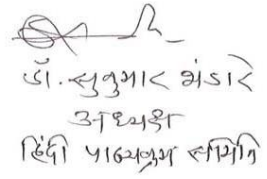 डॉ. सुकुमार भंडारे
अध्यक्ष
हिंदी पाठ्यक्रम समिति